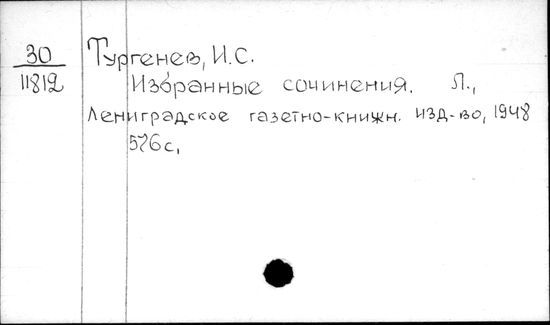 30
11812
Тургенев, И.С.
Избранные сочинения. Л.,
Лениградское газетно-книжн. изд-во, 1948
576с,